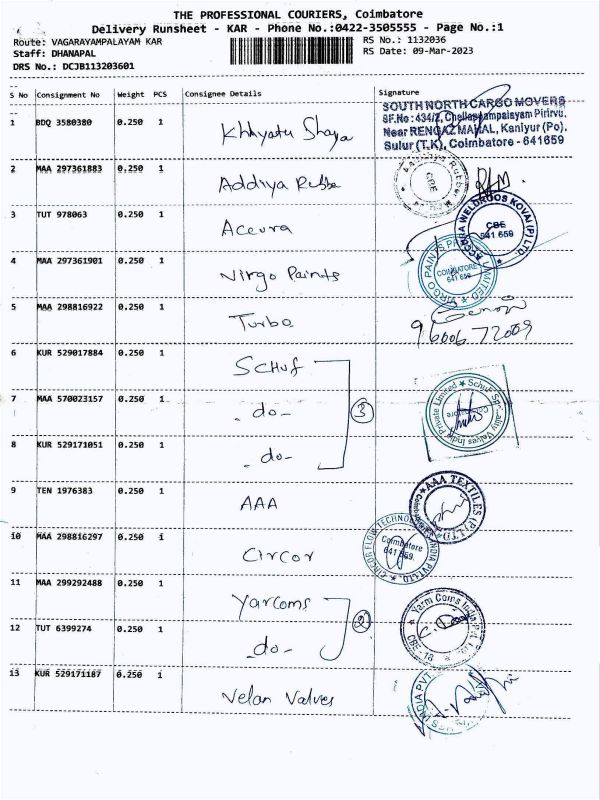 THE PROFESSIONAL COURIERS, Coimbatore
Delivery Runsheet - KAR - Phone No.:0422-3505555 - Page No.:1
Route: VAGARAYAMPALAYAM KAR
RS No.: 1132036
Staff: DHANAPAL
RS Date: 09-Mar-2023
DRS No.: DCJB113203601
S No Consignment No Weight PCS Consignee Details Signature
1 BDQ 3580380 0.250 1
SOUTH NORTH CARGO MOVERS
SF.No: 434/2, Pirivu,
Near RENGAZ MAHAL, Kaniyur (Po),
Sulur (T.K), Coimbatore - 641659
2 MAA 297361883 0.250 1 Addiya Rubbe
CBE
3 TUT 978063 0.250 1 Aceura
ACCURA WELDRODS KOVAI (P) LTD.
CBE
641 659
4 MAA 297361901 0.250 1 Virgo Paints
VIRGO PAINTS PRIVATE LIMITED
COIMBATORE
641 659
5 MAA 298816922 0.250 1 Turbo
96006 72009
6 KUR 529017884 0.250 1 SCHUF
7 MAA 570023157 0.250 1 - do -
3
Schuf Speciality Valves India Private Limited
Coimbatore
8 KUR 529171051 0.250 1 - do -
9 TEN 1976383 0.250 1 AAA
AAA TEXTILES (P) LTD
Coimbatore
10 MAA 298816297 0.250 1 Circor
CIRCOR FLOW TECHNOLOGIES INDIA PVT LTD.
Coimbatore
641 659.
11 MAA 299292488 0.250 1 Yarcoms
2
Yarm Coms India Pvt. Ltd.
CBE - 18
12 TUT 6399274 0.250 1 - do -
13 KUR 529171187 0.250 1 Velan Valves
INDIA PVT